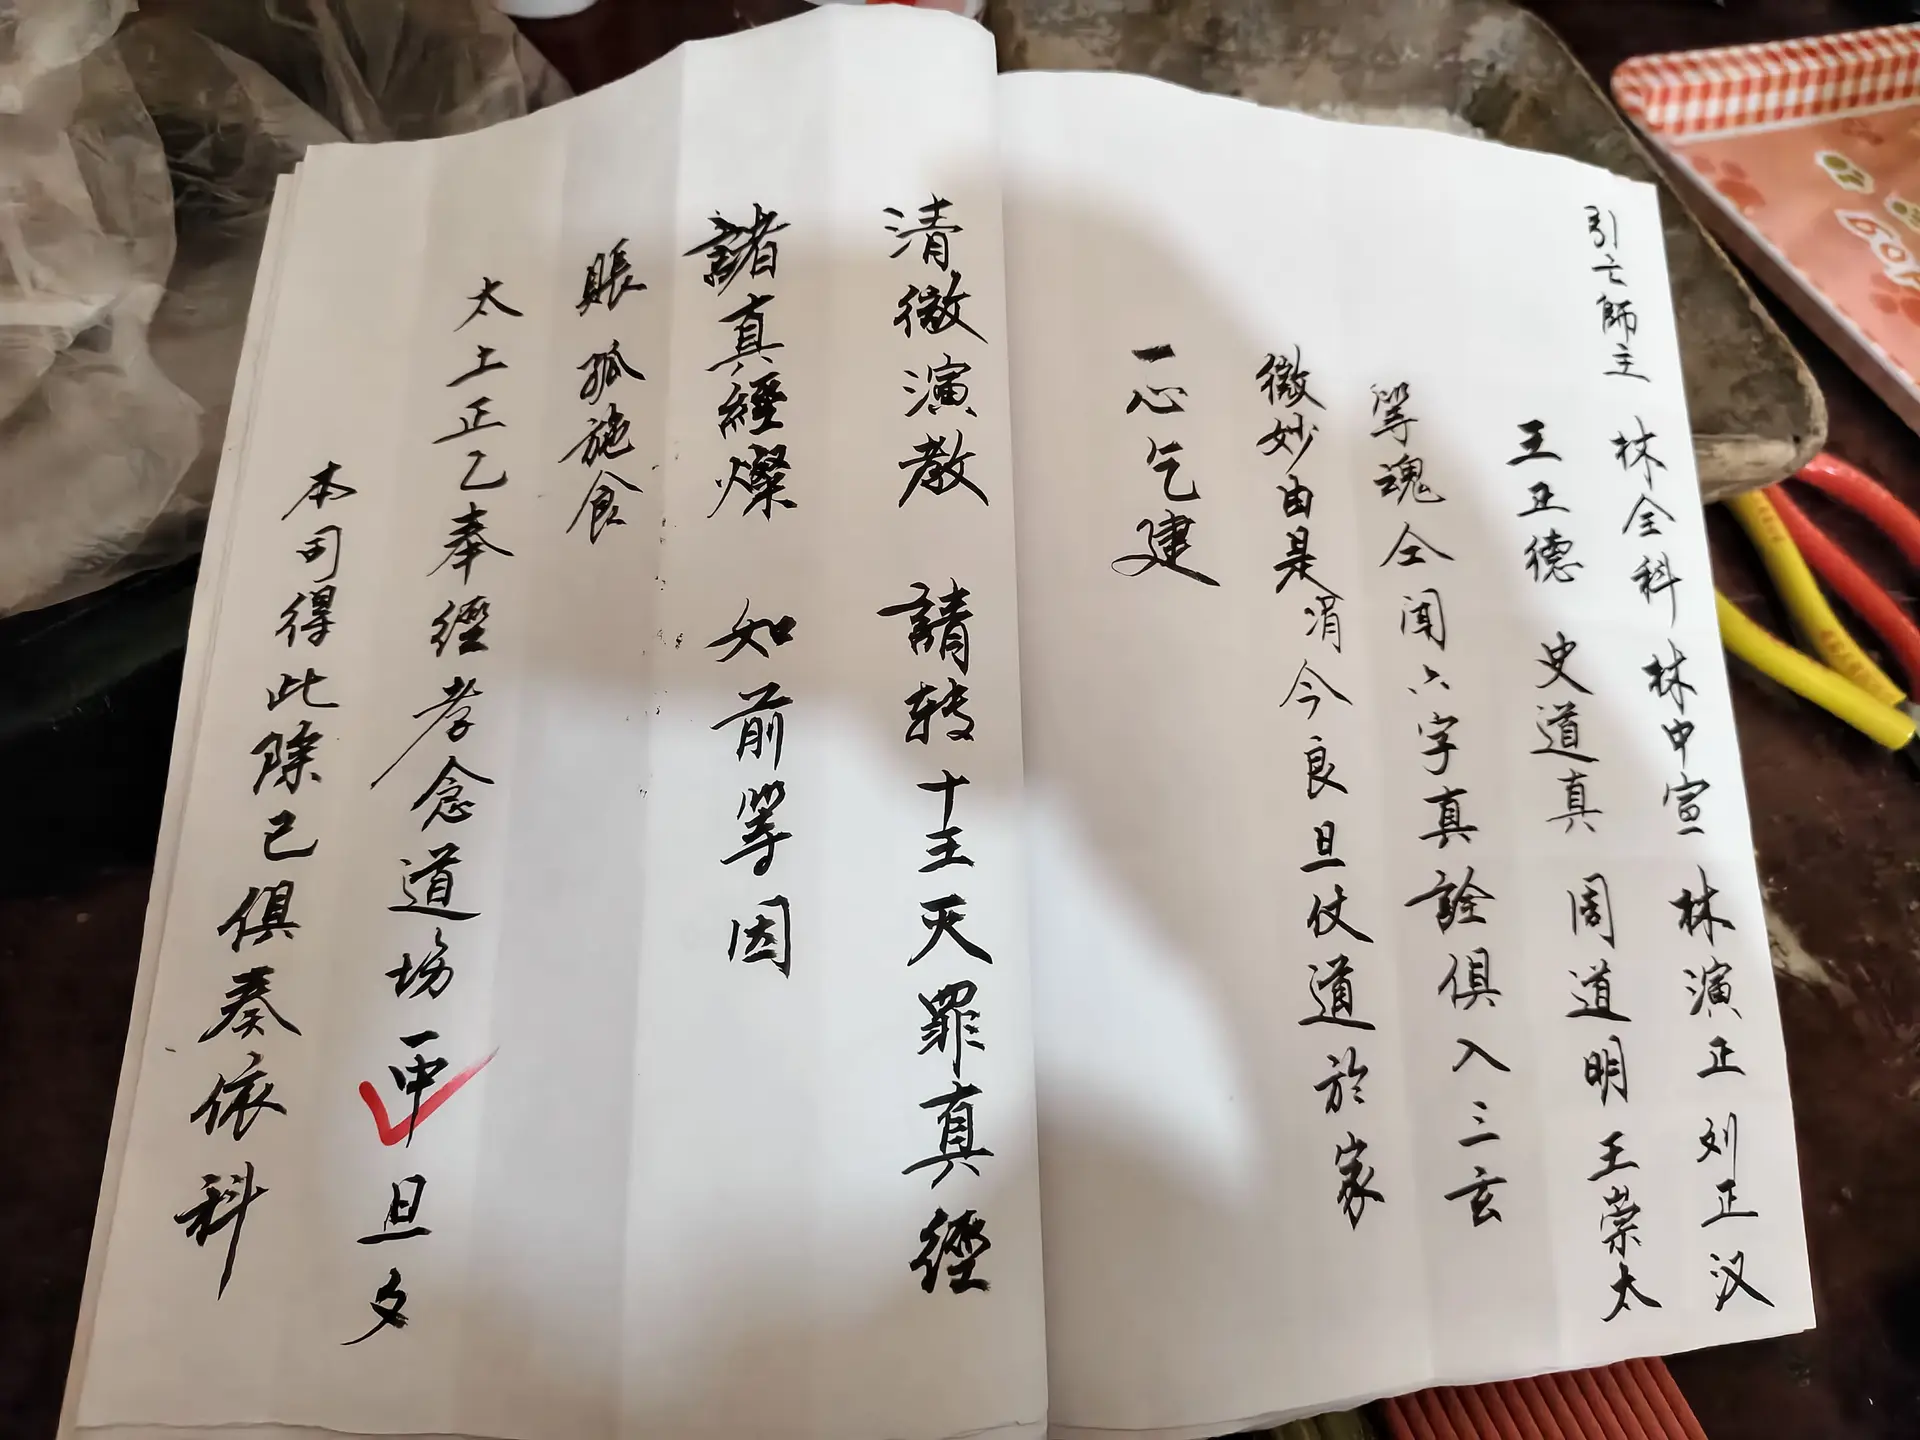 引亡師主
林全科 林中宣 林演正 刘正汉
王正德 史道真 周道明 王崇太
等魂仝闻六字真詮俱入三玄
微妙由是涓今良旦仗道於家
一心乞建
清微演教 請转十王灭罪真經
諸真經燦 如前等因
賬孤施食
太上正乙奉經孝念道场一中旦夕
本司得此除已俱奏依科